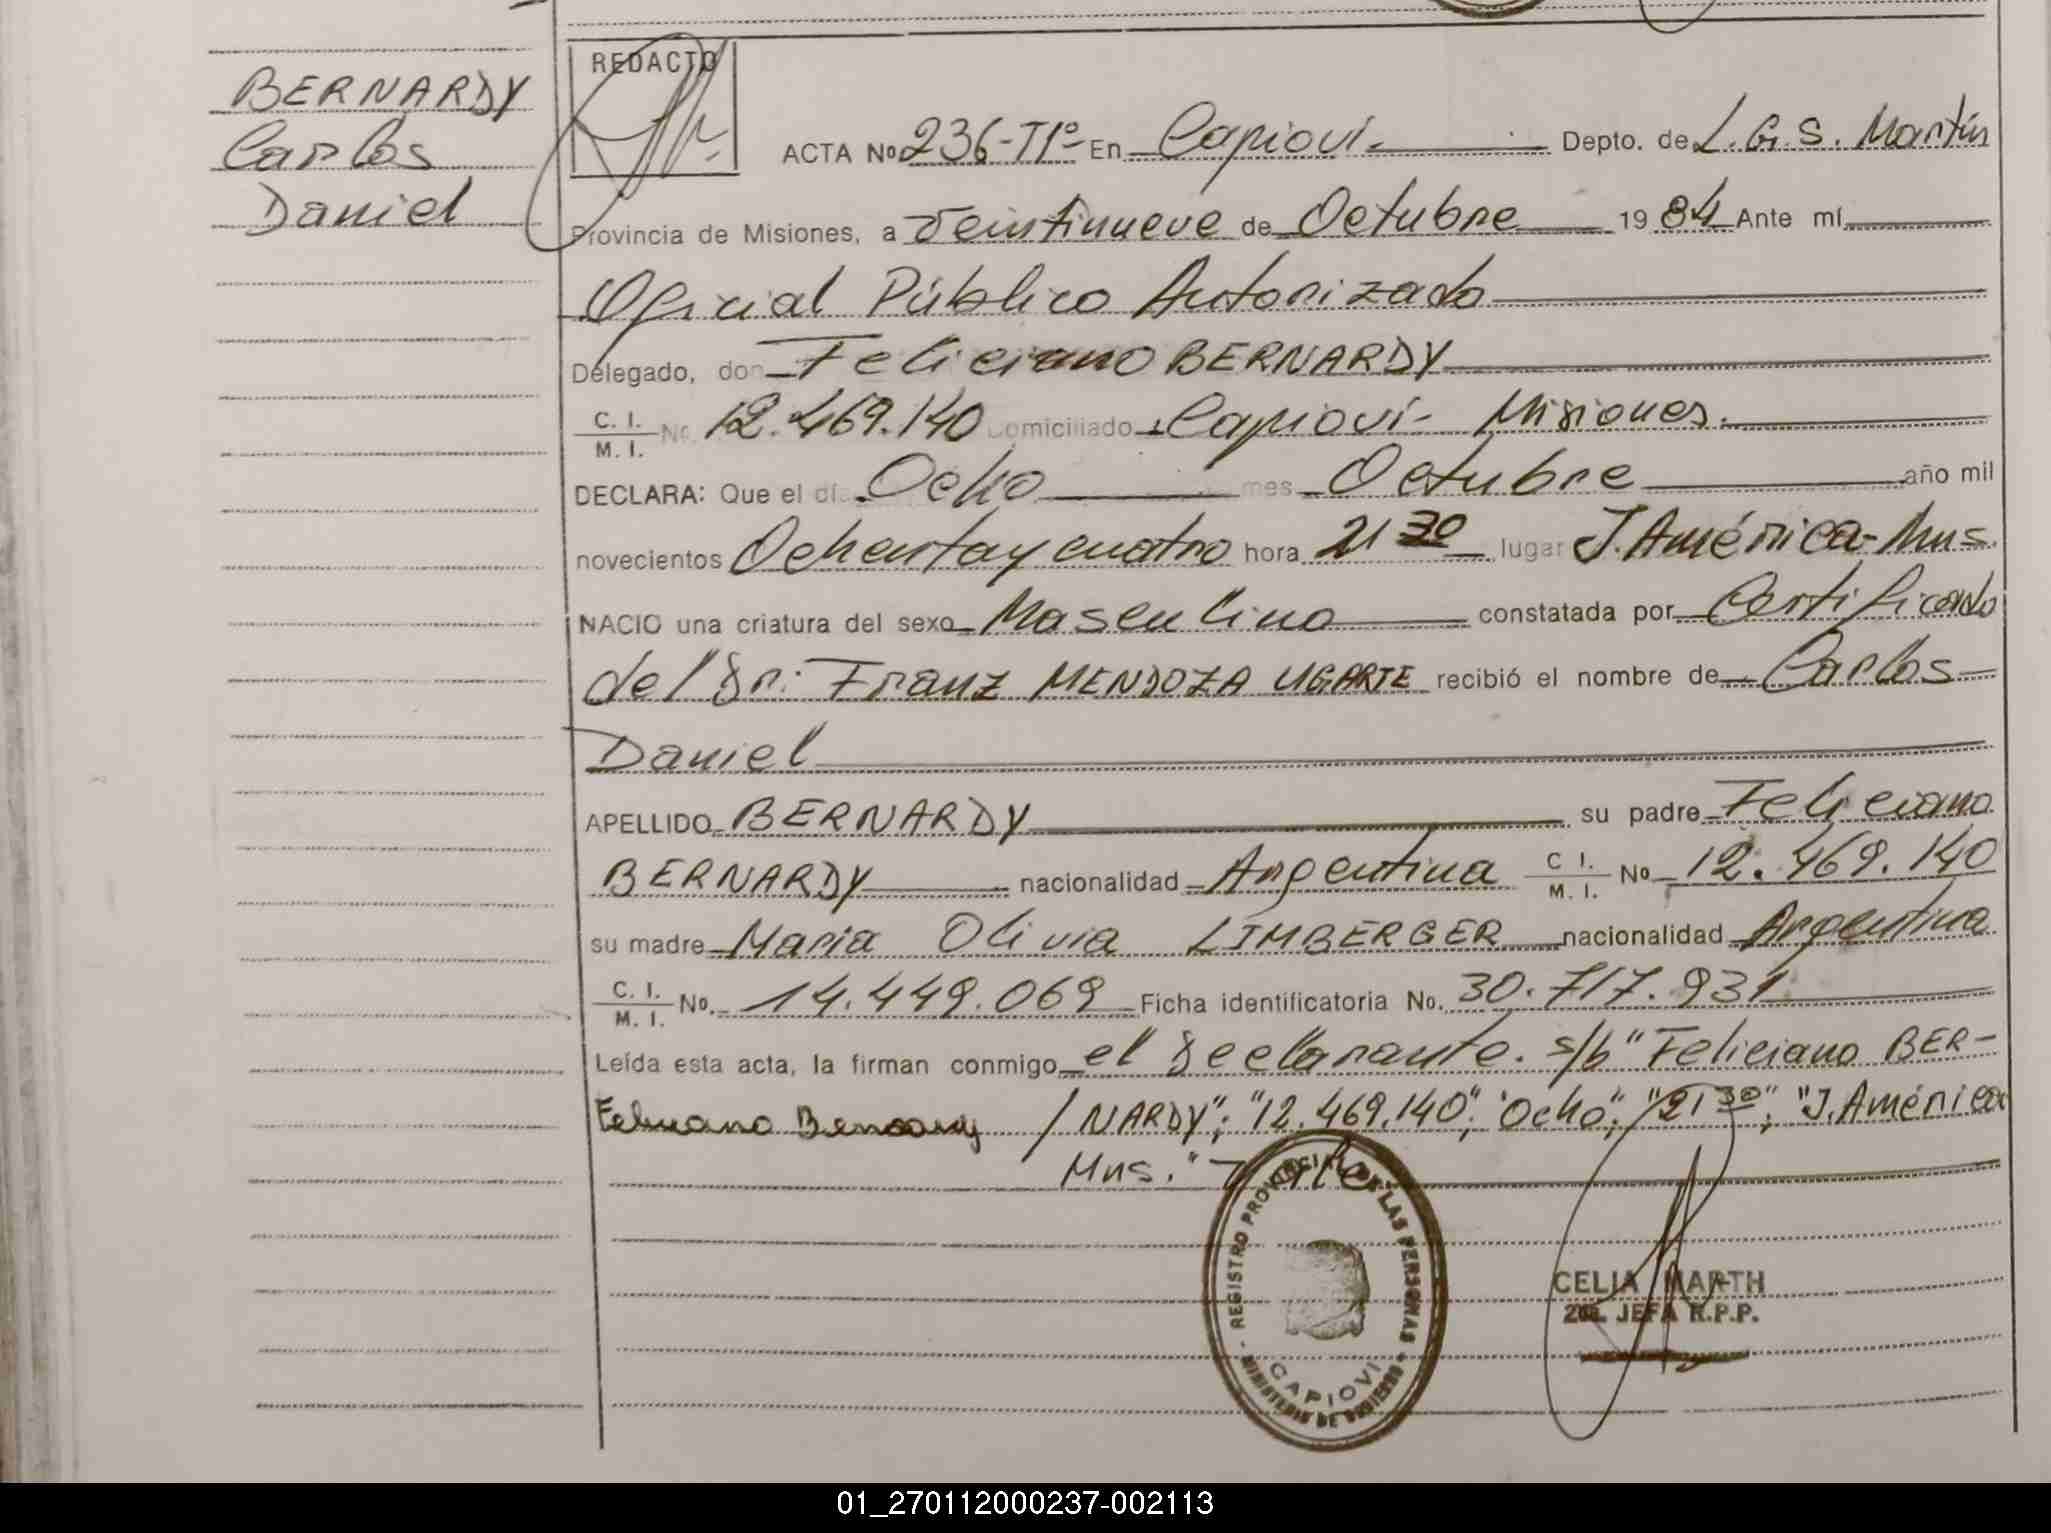 BERNARDY
Carlos
Daniel
REDACTO
ACTA No 236-TIº- En Capioví.- Depto. de L. G. S. Martín
Provincia de Misiones, a Veintinueve de Octubre 19 84 Ante mí
Oficial Público Autorizado
Delegado, don Feliciano BERNARDY
C. I. / M. I. No. 12.469.140 Domiciliado Capioví- Misiones.
DECLARA: Que el día Ocho mes Octubre año mil
novecientos Ochentaycuatro hora 21 30 lugar J. América- Mns.
NACIO una criatura del sexo Masculino constatada por Certificado
del Dr. Franz MENDOZA UGARTE recibió el nombre de Carlos
Daniel
APELLIDO BERNARDY su padre Feliciano
BERNARDY nacionalidad Argentina C I. / M. I. No 12.469.140
su madre Maria Olivia LIMBERGER nacionalidad Argentina
C. I. / M. I. No. 14.449.069 Ficha identificatoria No. 30.717.931
Leída esta acta, la firman conmigo el Declarante. s/b "Feliciano BER-
Feliciano Bernardy / NARDY"; "12.469.140"; "Ocho"; "21 30"; "J. América
Mns."
REGISTRO PROVINCIAL DE LAS PERSONAS
CAPIOVI
MINISTERIO DE GOBIERNO
CELIA MARTH
2da. JEFA R.P.P.
01_270112000237-002113